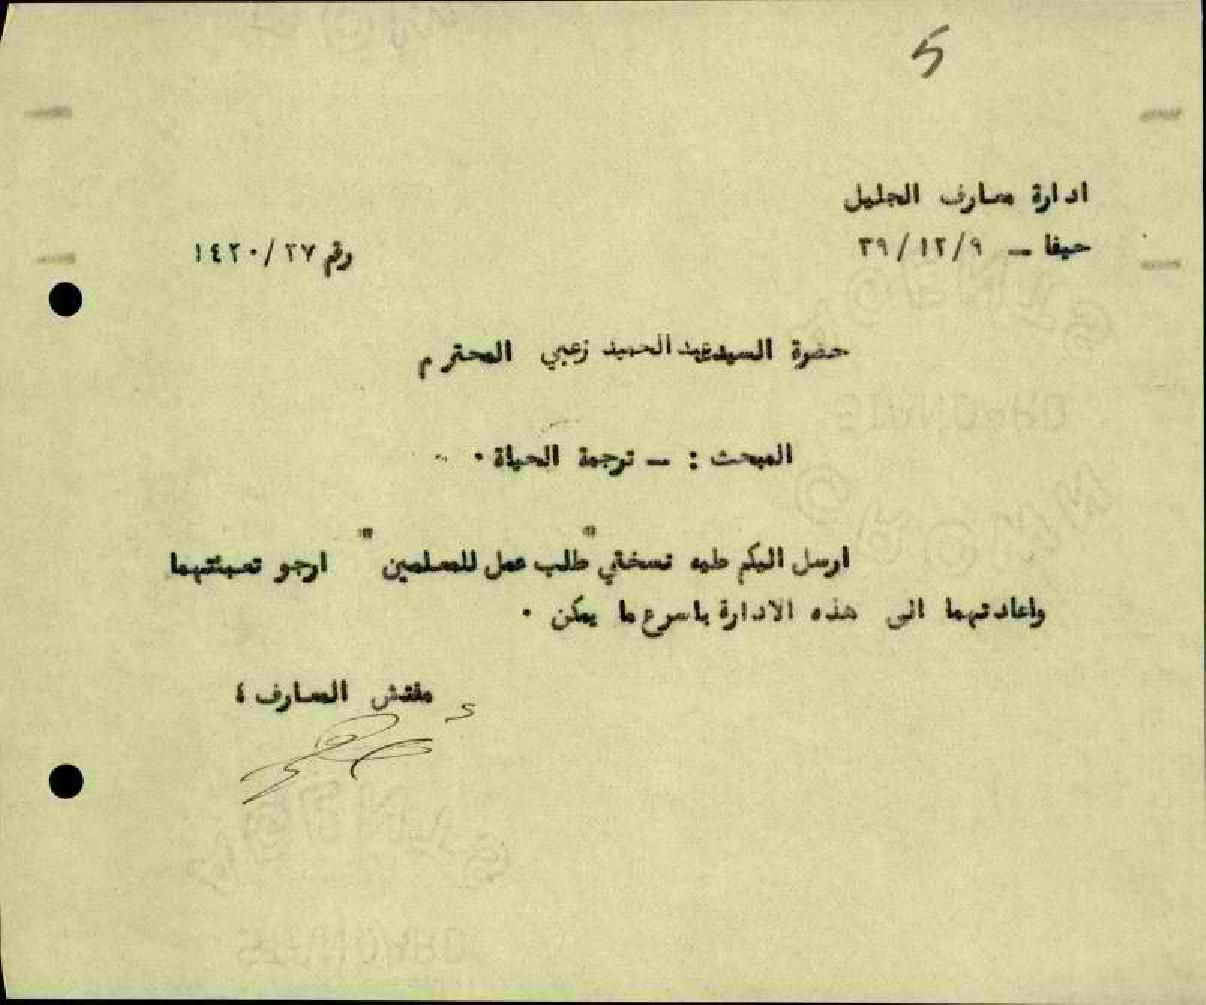 5
ادارة معارف الجليل
حيفا ـ ٩/١٢/٣٩
رقم ٢٧/١٤٢٠
حضرة السيد عبد الحميد زعبي المحترم
المبحث : ـ ترجمة الحياة .
ارسل اليكم طيه نسختي "طلب عمل للمعلمين" ارجو تعبئتهما
واعادتهما الى هذه الادارة باسرع ما يمكن .
مفتش المعارف ؛